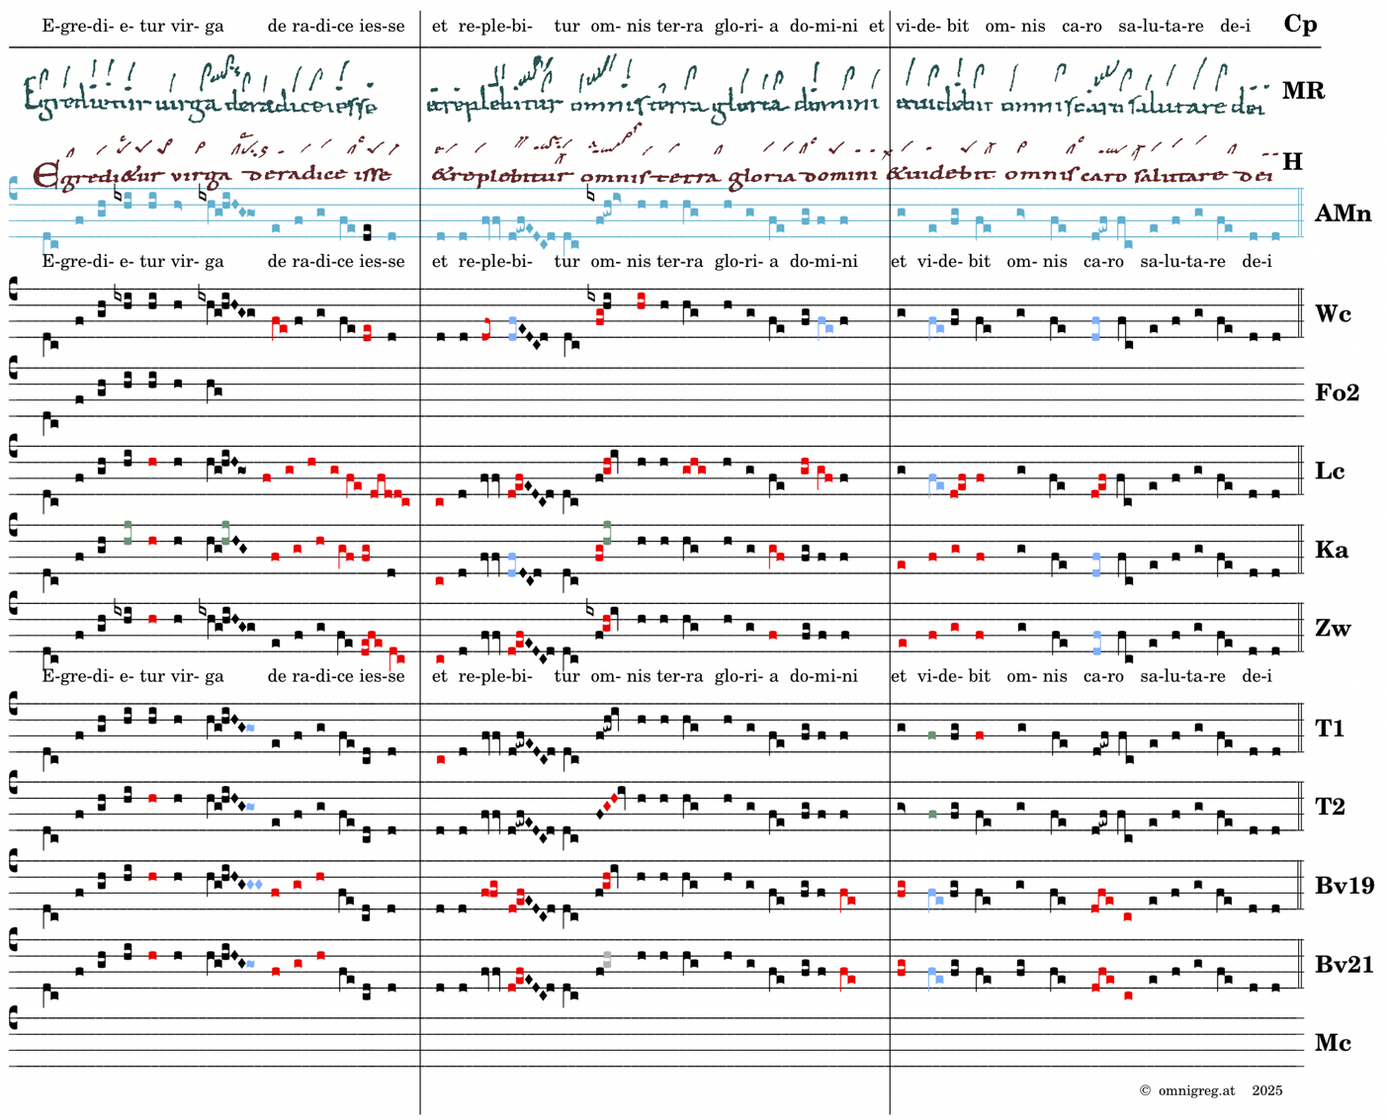 E-gre-di- e- tur vir- ga de ra-di-ce ies-se et re-ple-bi- tur om- nis ter-ra glo-ri- a do-mi-ni et vi-de- bit om- nis ca-ro sa-lu-ta-re de-i Cp
Egredietur uirga deradice iesse et replebitur omnis terra gloria domini et uidebit omnis caro salutare dei MR
Egredi&ur virga deradice isse &replebitur omnis terra gloria domini &uidebit omnis caro salutare dei H
AMn
E-gre-di- e- tur vir- ga de ra-di-ce ies-se et re-ple-bi- tur om- nis ter-ra glo-ri- a do-mi-ni et vi-de- bit om- nis ca-ro sa-lu-ta-re de-i
Wc
Fo2
Lc
Ka
Zw
E-gre-di- e- tur vir- ga de ra-di-ce ies-se et re-ple-bi- tur om- nis ter-ra glo-ri- a do-mi-ni et vi-de- bit om- nis ca-ro sa-lu-ta-re de-i
T1
T2
Bv19
Bv21
Mc
© omnigreg.at 2025